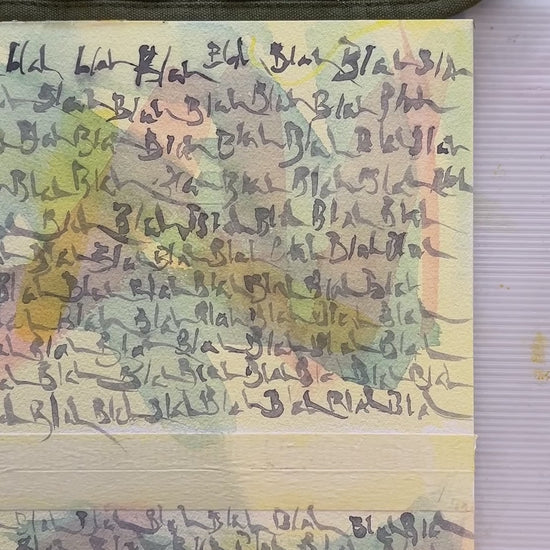 Blah Blah Blah Blah Blah Blah Blah
Blah Blah Blah Blah Blah
Blah Blah Blah Blah Blah Blah
Blah Blah Blah Blah Blah Blah Blah
Blah Blah Blah Blah Blah Blah
Blah Blah Blah Blah Blah Blah Blah
Blah Blah Blah Blah Blah Blah Blah
Blah Blah Blah Blah Blah Blah
Blah Blah Blah Blah Blah Blah
Blah Blah Blah Blah Blah Blah
Blah Blah Blah Blah Blah Blah Blah
Blah Blah Blah Blah Blah Blah Blah